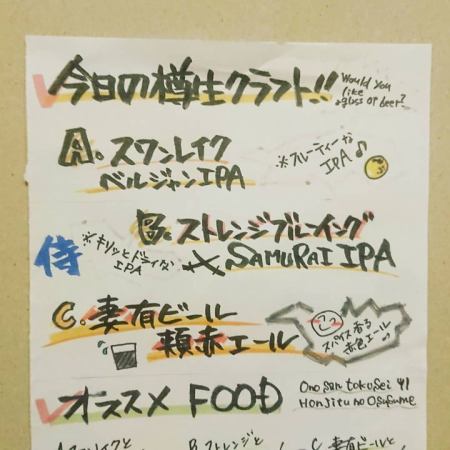 今日の樽生クラフト!!
Would you
like
a glass of beer?
A. スワンレイク
ベルジャンIPA
※フルーティーな
IPA♪
B. ストレンジブルーイング
× SAMURAI IPA
侍
※キリッとドライな
IPA
C. 妻有ビール
頬赤エール
スパイス香る
赤色エール♪
オススメ FOOD
Ono san tokusei yl
Honjitu no osusume
A スワンレイクと
B ストレンジと
C 妻有ビールと